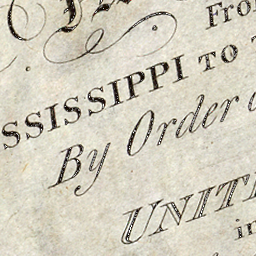 Fro
SSISSIPPI TO
By Order
UNIT
in